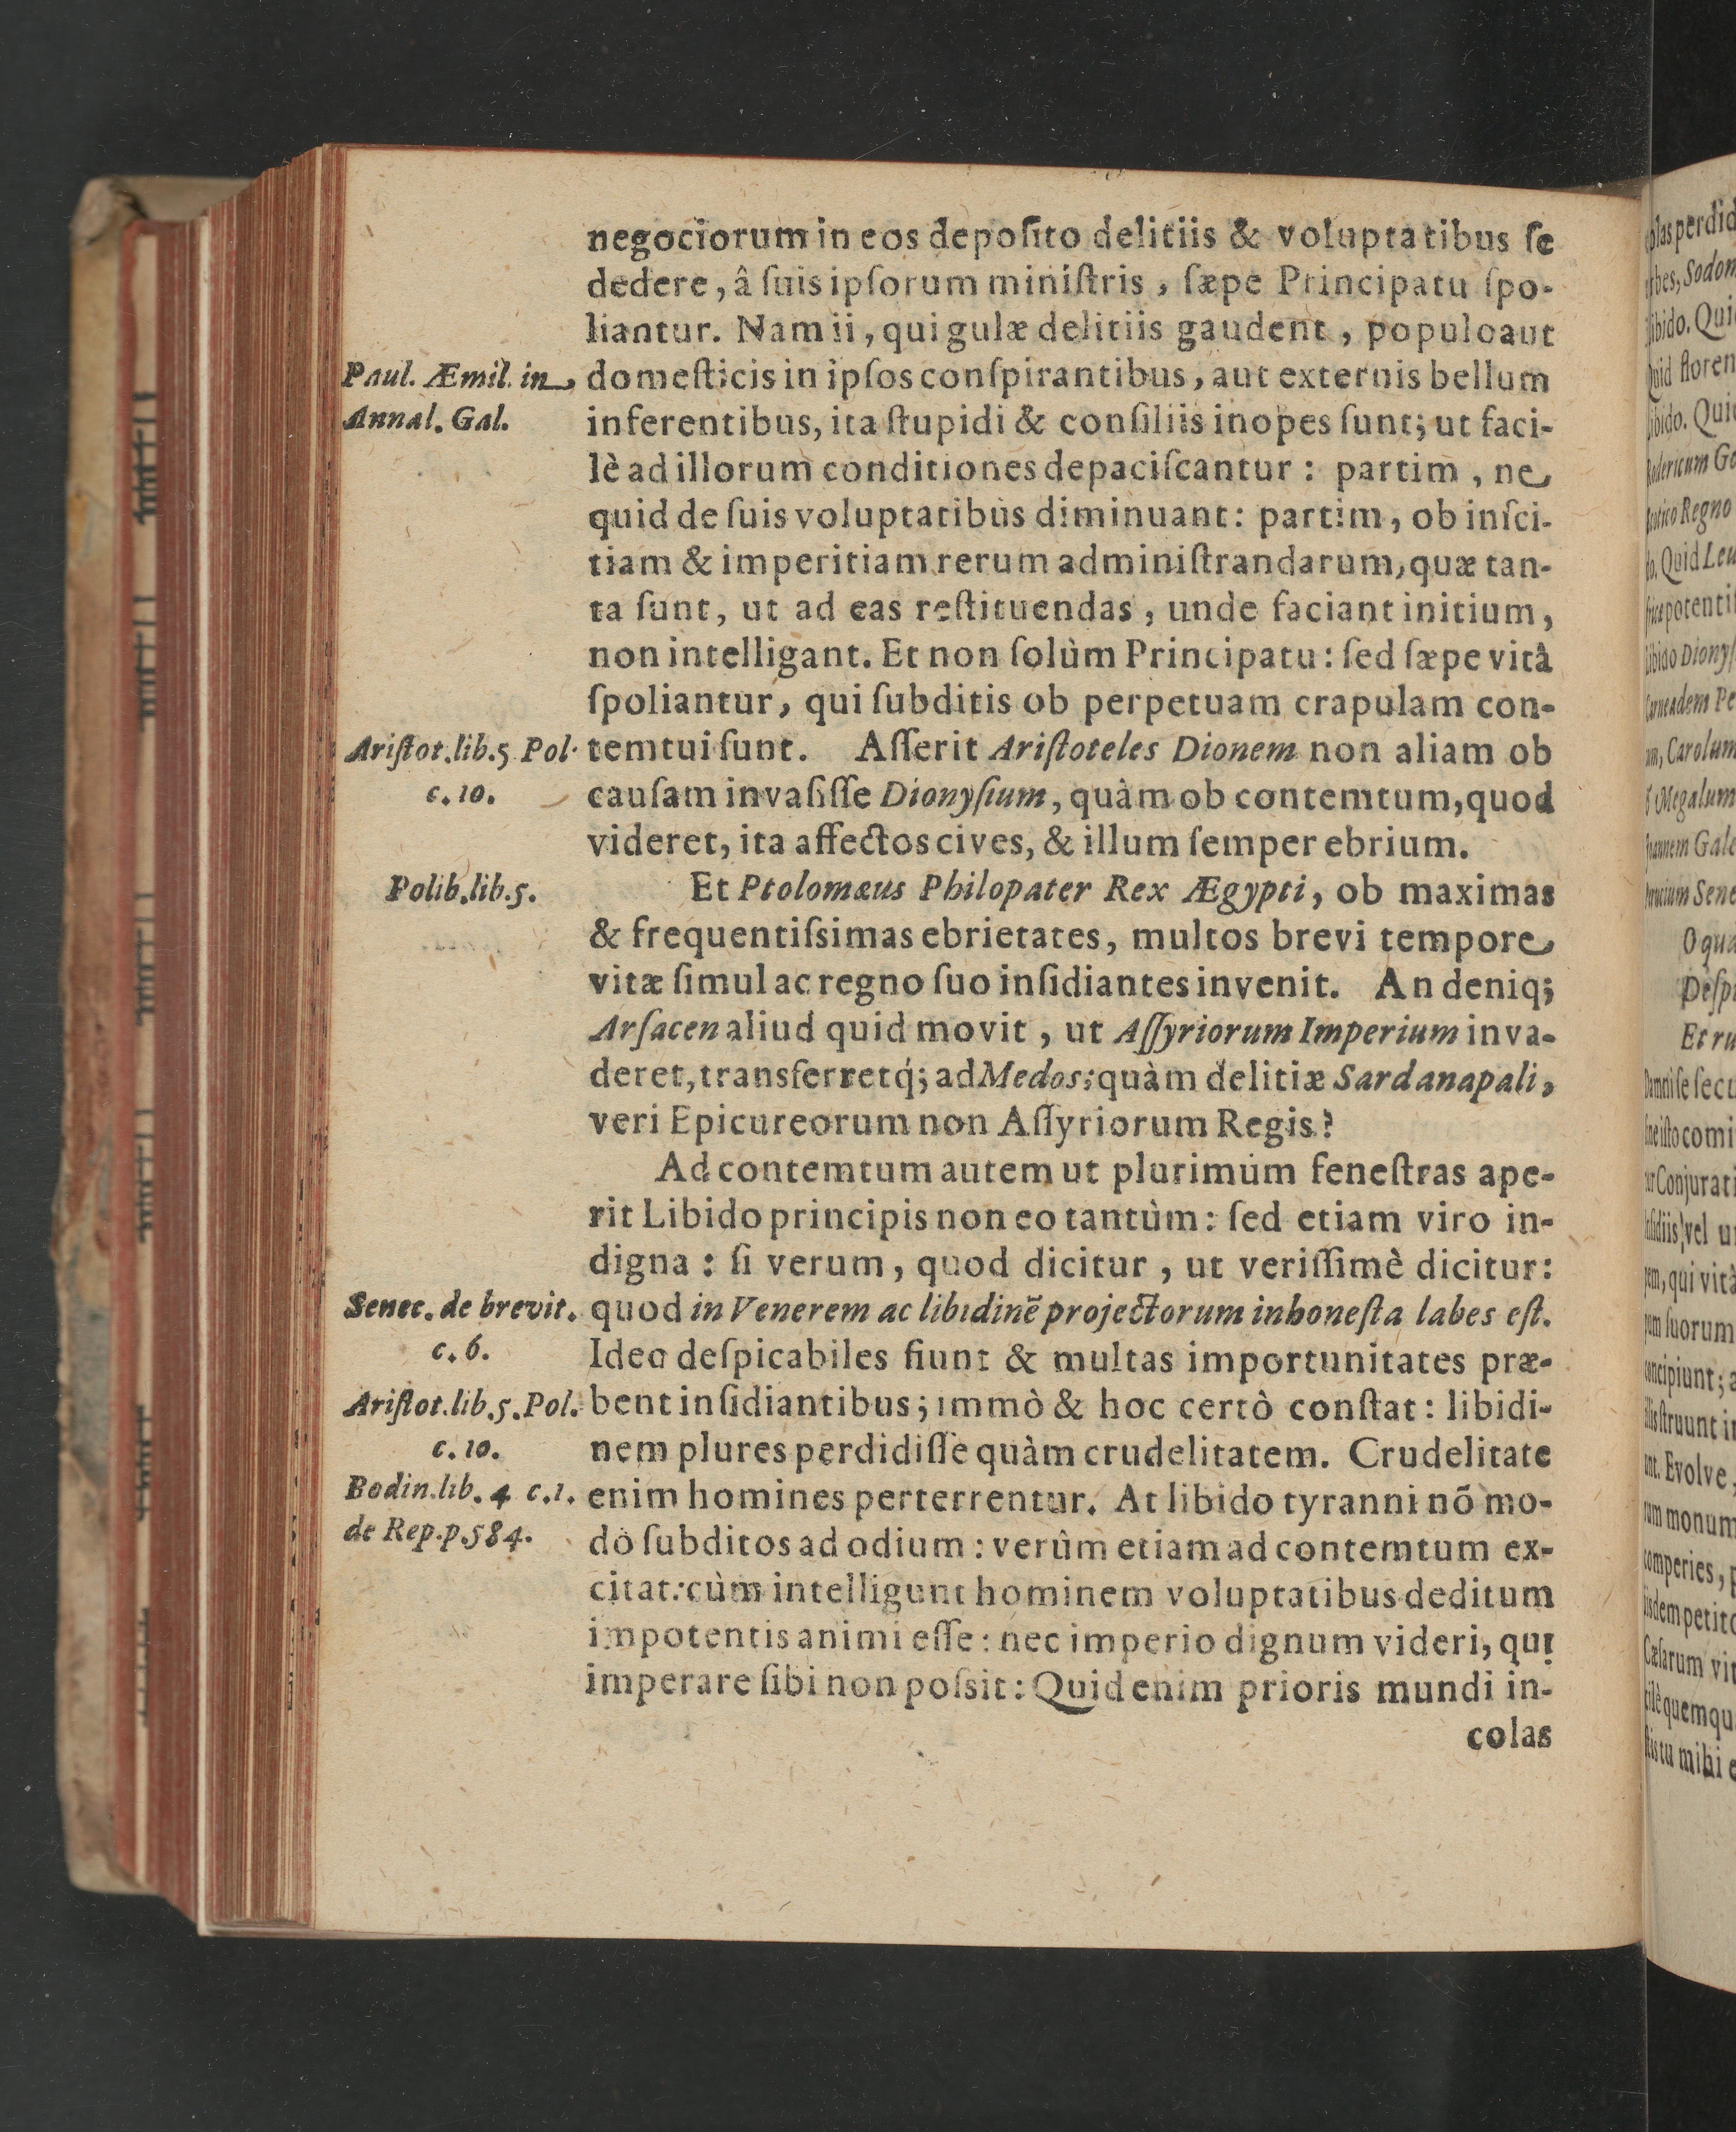 negociorum in eos deposito delitiis & voluptatibus se
dedere, â suis ipsorum ministris, sæpe Principatu spo-
liantur. Nam ii, qui gulæ delitiis gaudent, populo aut
Paul. Æmil. in
Annal. Gal.
domesticis in ipsos conspirantibus, aut externis bellum
inferentibus, ita stupidi & consiliis inopes sunt; ut faci-
lè ad illorum conditiones depaciscantur: partim, ne
quid de suis voluptatibus diminuant: partim, ob insci-
tiam & imperitiam rerum administrandarum, quæ tan-
ta sunt, ut ad eas restituendas, unde faciant initium,
non intelligant. Et non solùm Principatu: sed sæpe vitâ
spoliantur, qui subditis ob perpetuam crapulam con-
Aristot. lib. 5 Pol.
c. 10.
temtui sunt. Asserit Aristoteles Dionem non aliam ob
causam invasisse Dionysium, quàm ob contemtum, quod
videret, ita affectos cives, & illum semper ebrium.
Polib. lib. 5.
Et Ptolomæus Philopater Rex Ægypti, ob maximas
& frequentissimas ebrietates, multos brevi tempore
vitæ simul ac regno suo insidiantes invenit. An deniq;
Arsacen aliud quid movit, ut Assyriorum Imperium inva-
deret, transferretq́; ad Medos: quàm delitiæ Sardanapali,
veri Epicureorum non Assyriorum Regis?
Ad contemtum autem ut plurimùm fenestras ape-
rit Libido principis non eo tantùm: sed etiam viro in-
digna: si verum, quod dicitur, ut verissimè dicitur:
Senec. de brevit.
c. 6.
quod in Venerem ac libidinē projectorum inhonesta labes est.
Ideo despicabiles fiunt & multas importunitates præ-
Aristot. lib. 5. Pol.
c. 10.
bent insidiantibus; immò & hoc certò constat: libidi-
nem plures perdidisse quàm crudelitatem. Crudelitate
Bodin. lib. 4 c. 1.
de Rep. p. 584.
enim homines perterrentur. At libido tyranni nō mo-
dò subditos ad odium: verûm etiam ad contemtum ex-
citat: cùm intelligunt hominem voluptatibus deditum
impotentis animi esse: nec imperio dignum videri, qui
imperare sibi non possit: Quid enim prioris mundi in-
colas